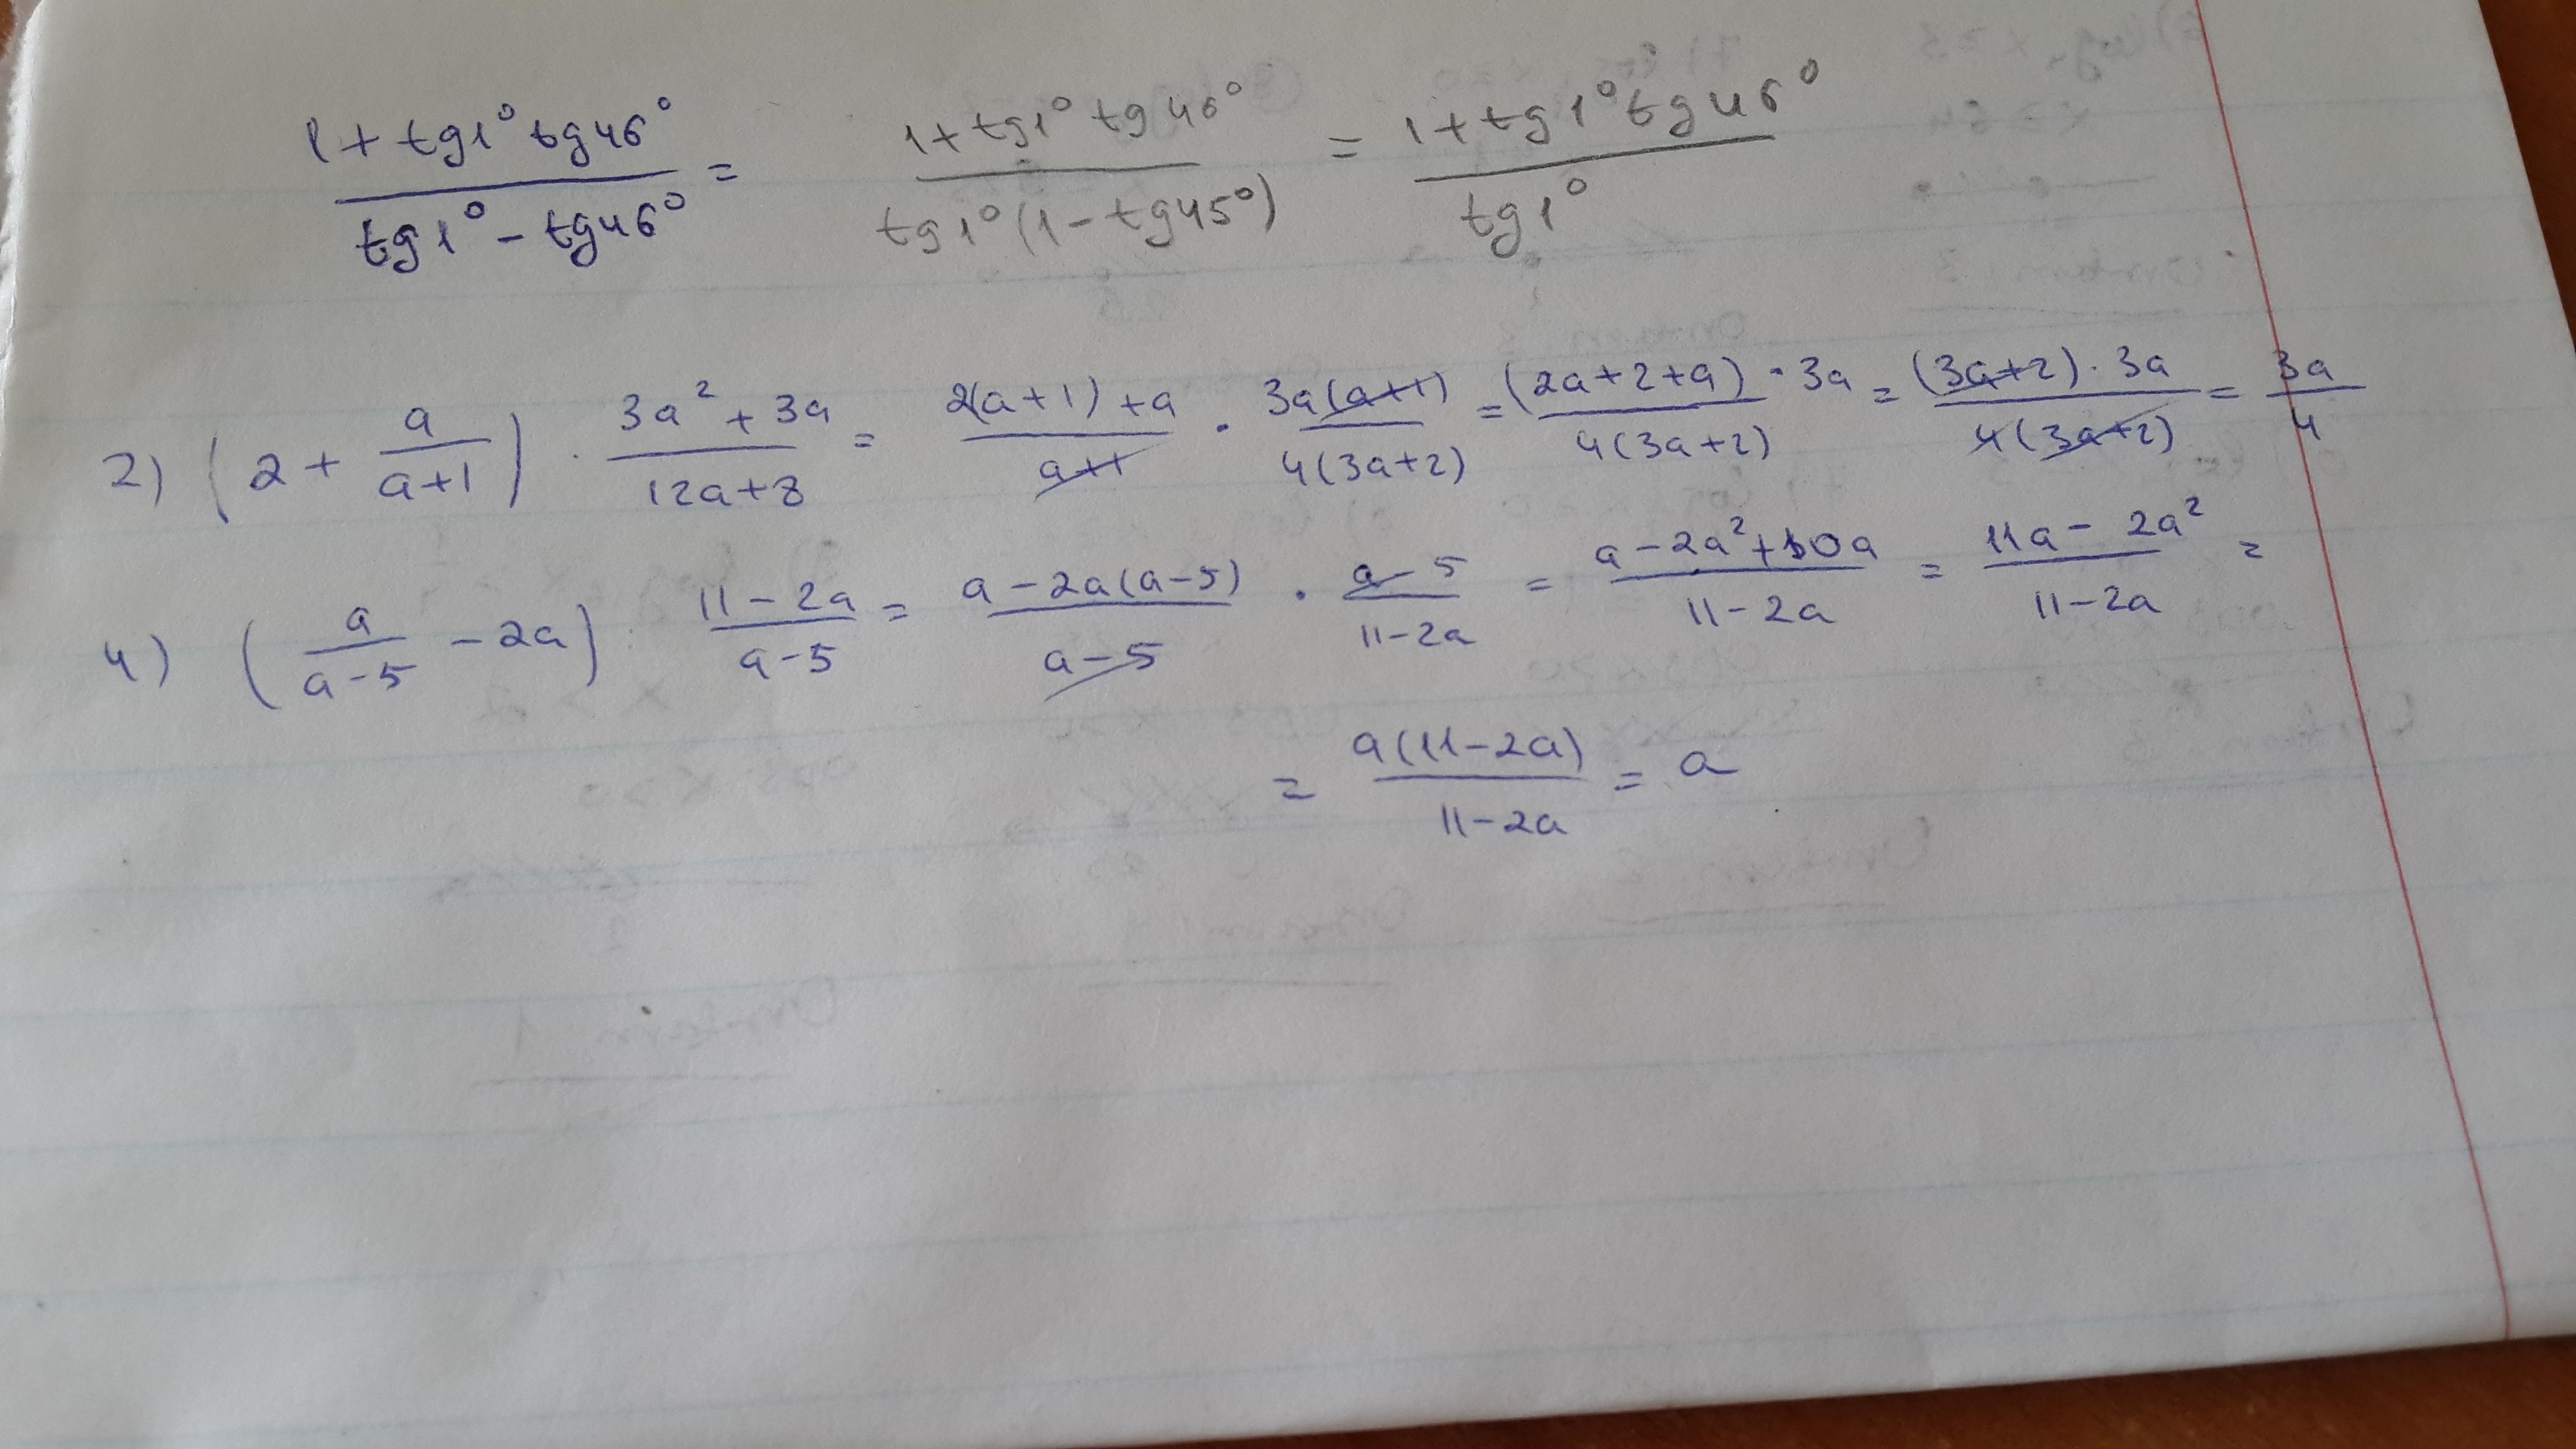 (1 + tg1° tg46°)/(tg1° - tg46°) = (1 + tg1° tg46°)/(tg1°(1 - tg45°)) = (1 + tg1° tg46°)/(tg1°)
2) (2 + a/(a+1)) · (3a² + 3a)/(12a+8) = (2(a+1) + a)/(a+1) · (3a(a+1))/(4(3a+2)) = ((2a+2+a) · 3a)/(4(3a+2)) = ((3a+2) · 3a)/(4(3a+2)) = 3a/4
4) (a/(a-5) - 2a) : (11-2a)/(a-5) = (a - 2a(a-5))/(a-5) · (a-5)/(11-2a) = (a - 2a² + 10a)/(11-2a) = (11a - 2a²)/(11-2a) =
= (a(11-2a))/(11-2a) = a